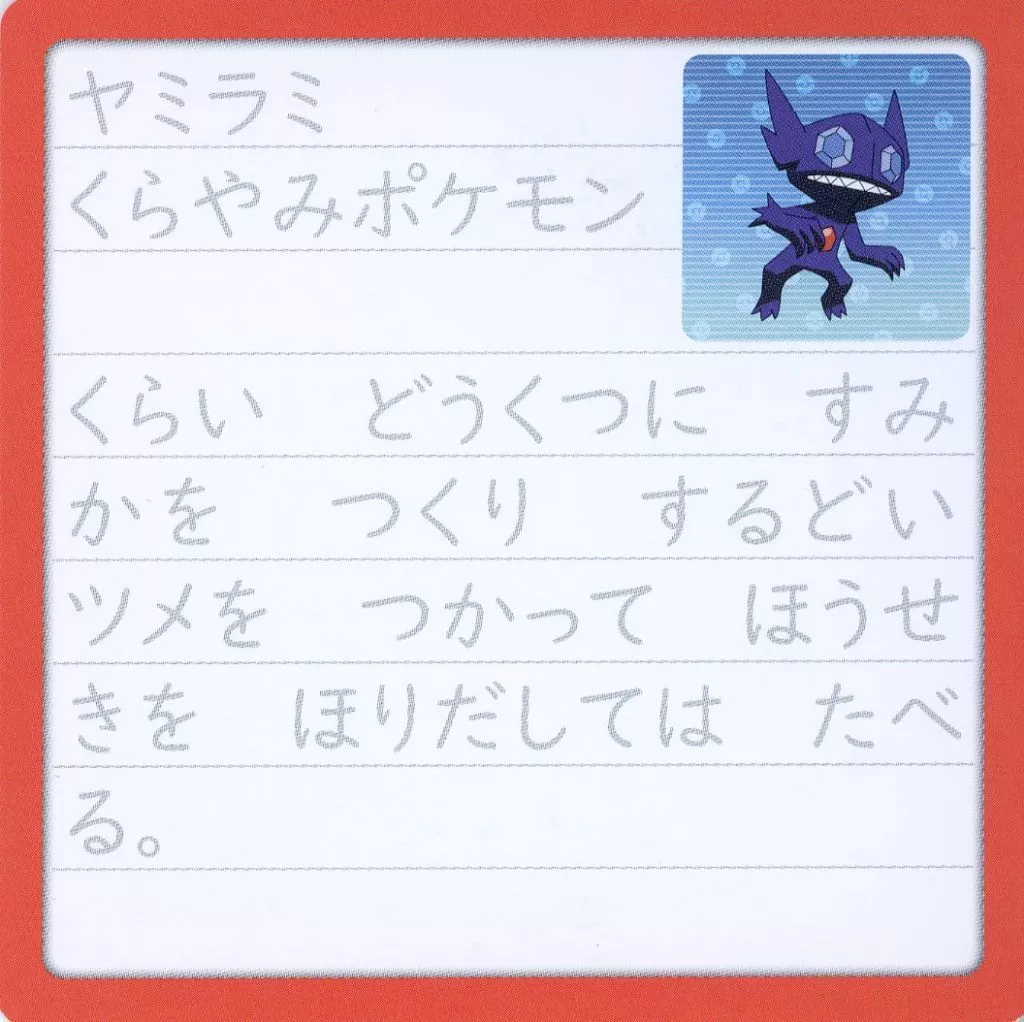 ヤミラミ
くらやみポケモン
くらい　どうくつに　すみ
かを　つくり　するどい
ツメを　つかって　ほうせ
きを　ほりだしては　たべ
る。